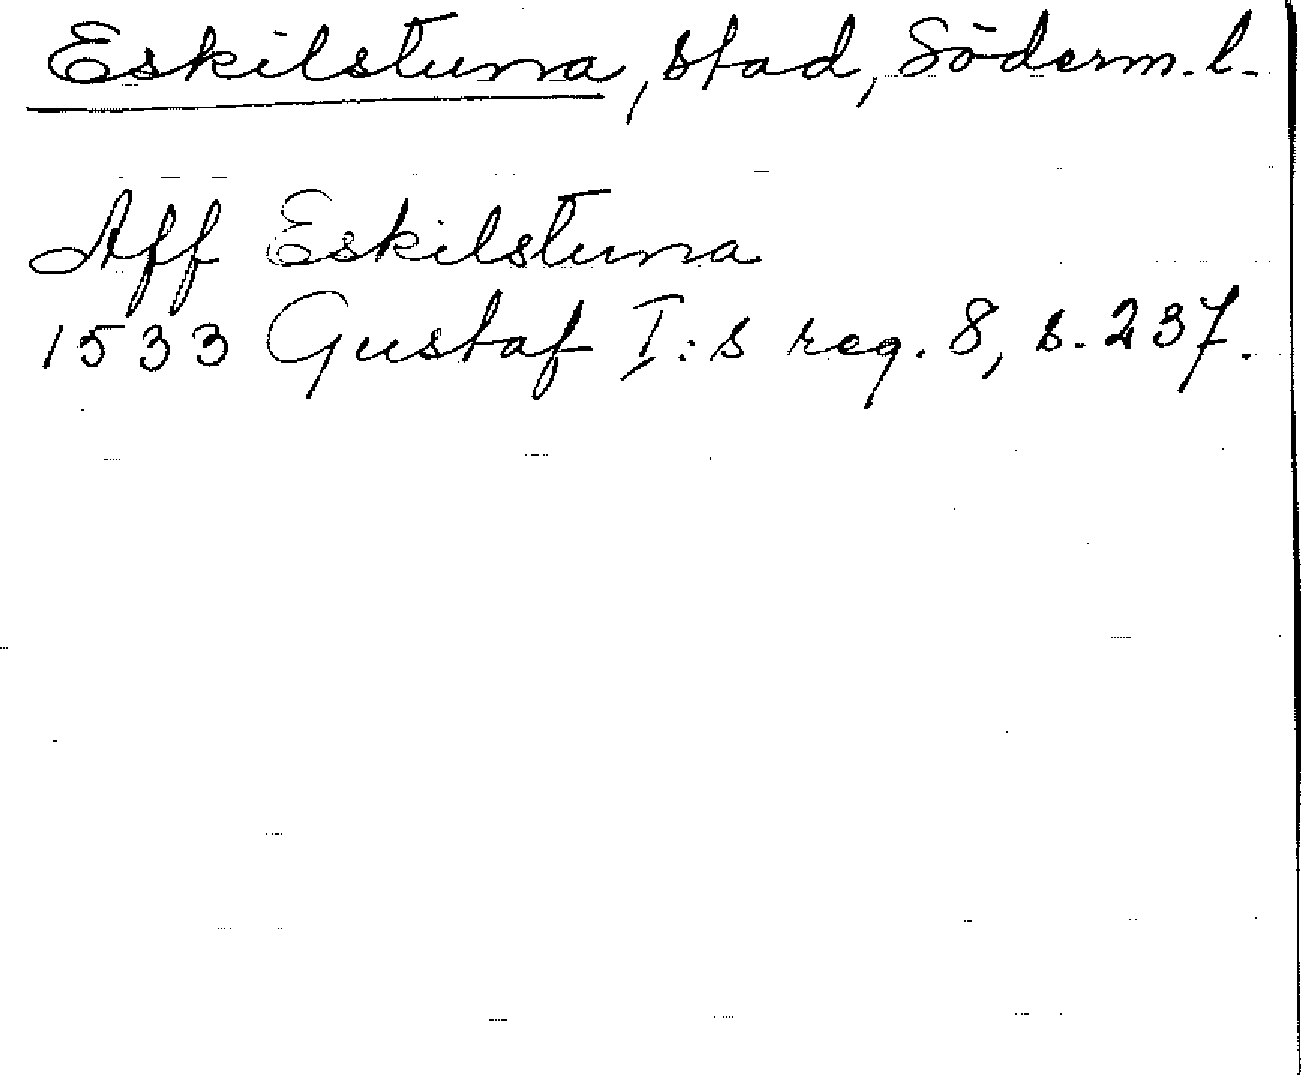 Eskilstuna, stad, Söderm. l.
Aff Eskilstuna
1533 Gustaf I:s reg. 8, s. 237.